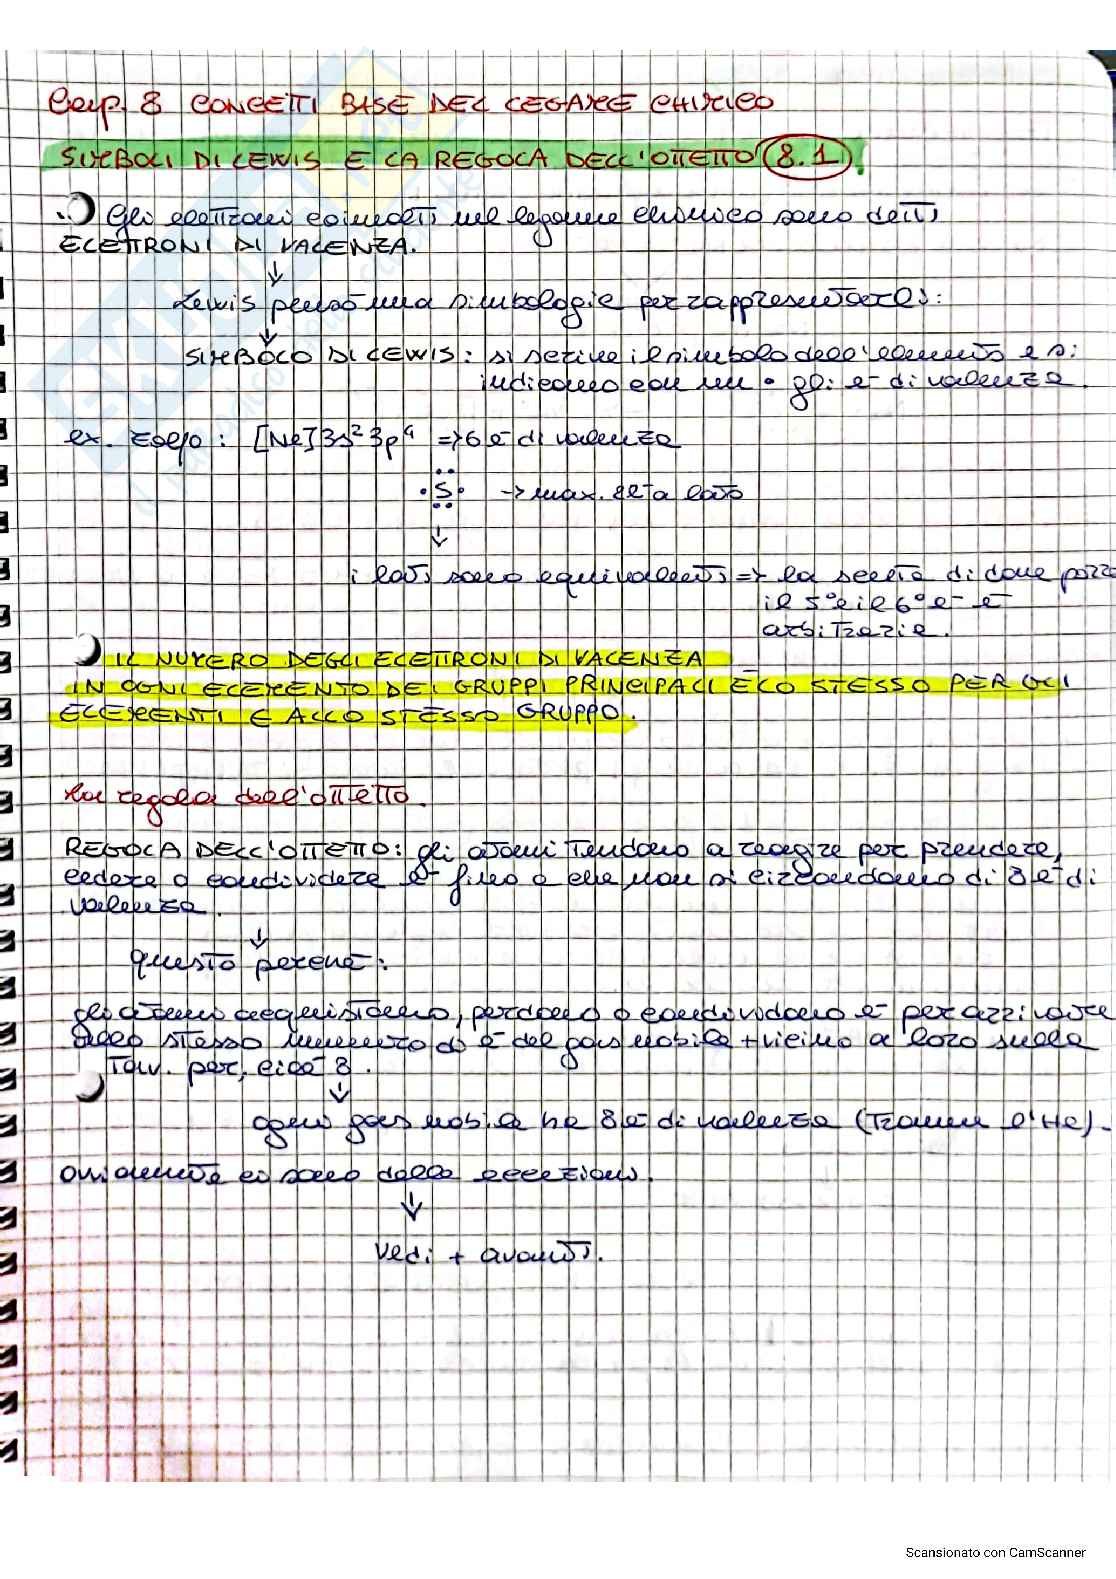 Cap. 8 CONCETTI BASE DEL LEGAME CHIMICO
SIMBOLI DI LEWIS E LA REGOLA DELL'OTTETTO 8.1
Gli elettroni coinvolti nel legame chimico sono detti
ELETTRONI DI VALENZA.
↓
Lewis pensò una simbologia per rappresentarli:
↓
SIMBOLO DI LEWIS: si scrive il simbolo dell'elemento e si
indicano con un • gli e⁻ di valenza.
ex. zolfo: [Ne]3s² 3p⁴ => 6 e⁻ di valenza
•S• -> max. 2 e⁻ a lato
↓
i lati sono equivalenti => la scelta di dove porre
il 5° e il 6° e⁻ è
arbitraria.
IL NUMERO DEGLI ELETTRONI DI VALENZA
IN OGNI ELEMENTO DEI GRUPPI PRINCIPALI È LO STESSO PER GLI
ELEMENTI E ALLO STESSO GRUPPO.
La regola dell'ottetto.
REGOLA DELL'OTTETTO: gli atomi tendono a reagire per prendere,
cedere o condividere e⁻ fino a che non si circondano di 8 e⁻ di
valenza.
↓
questo perché:
gli atomi acquistano, perdono o condividono e⁻ per arrivare
allo stesso numero di e⁻ del gas nobile + vicino a loro sulla
Tav. per, cioè 8.
↓
ogni gas nobile ha 8 e⁻ di valenza (tranne l'He).
ovviamente ci sono delle eccezioni.
↓
vedi + avanti.
Scansionato con CamScanner